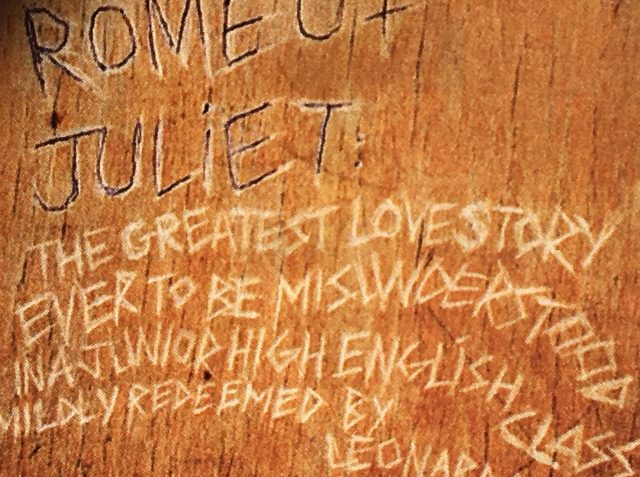 ROMEO +
JULiET:
THE GREATEST LOVE STORY
EVER TO BE MISUNDERSTOOD
IN A JUNIOR HIGH ENGLiSH CLASS
MILDLY REDEEMED BY
LEONARD